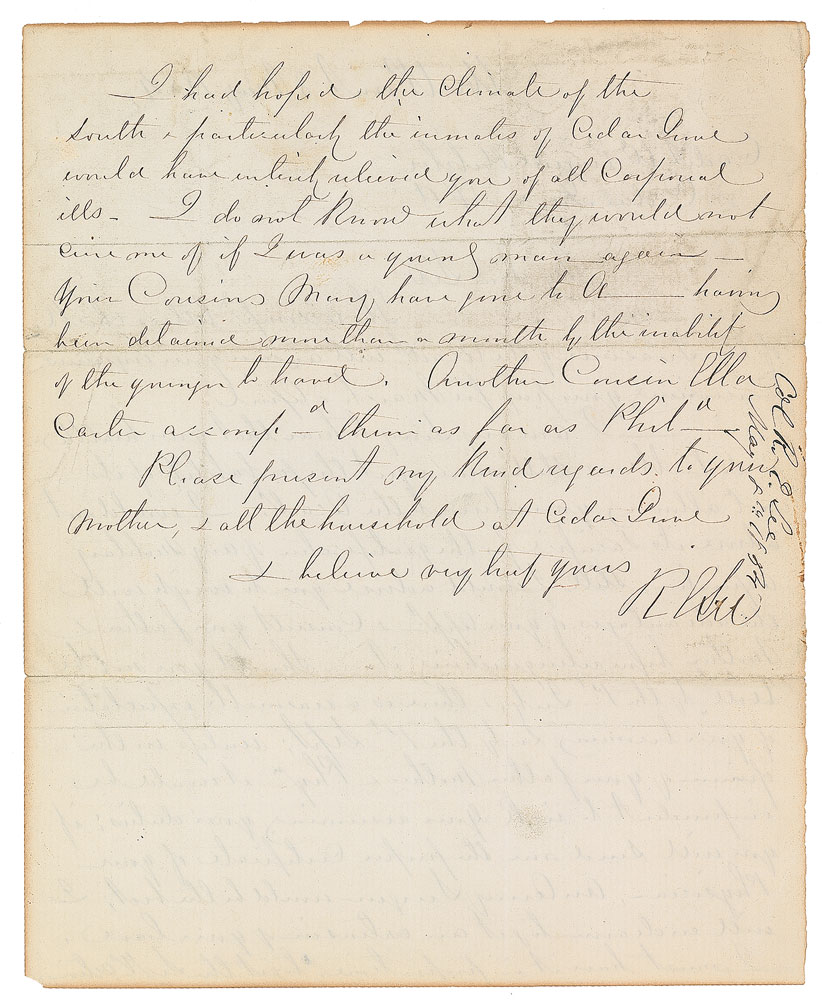 I had hoped the climate of the
South & particularly the inmates of Cedar Grove
would have entirely relieved you of all Corporeal
ills - I do not know what they would not
cure me of if I was a young man again -
Your Cousins Mary have gone to A—— having
been detained more than a month by the inability
of the younger to travel. Another Cousin Ella
Carter accomp—d them as far as Phil—a
Please present my kind regards to your
Mother, & all the household at Cedar Grove
& believe very truly yours
R E Lee
Col. R. E. Lee
May 8th